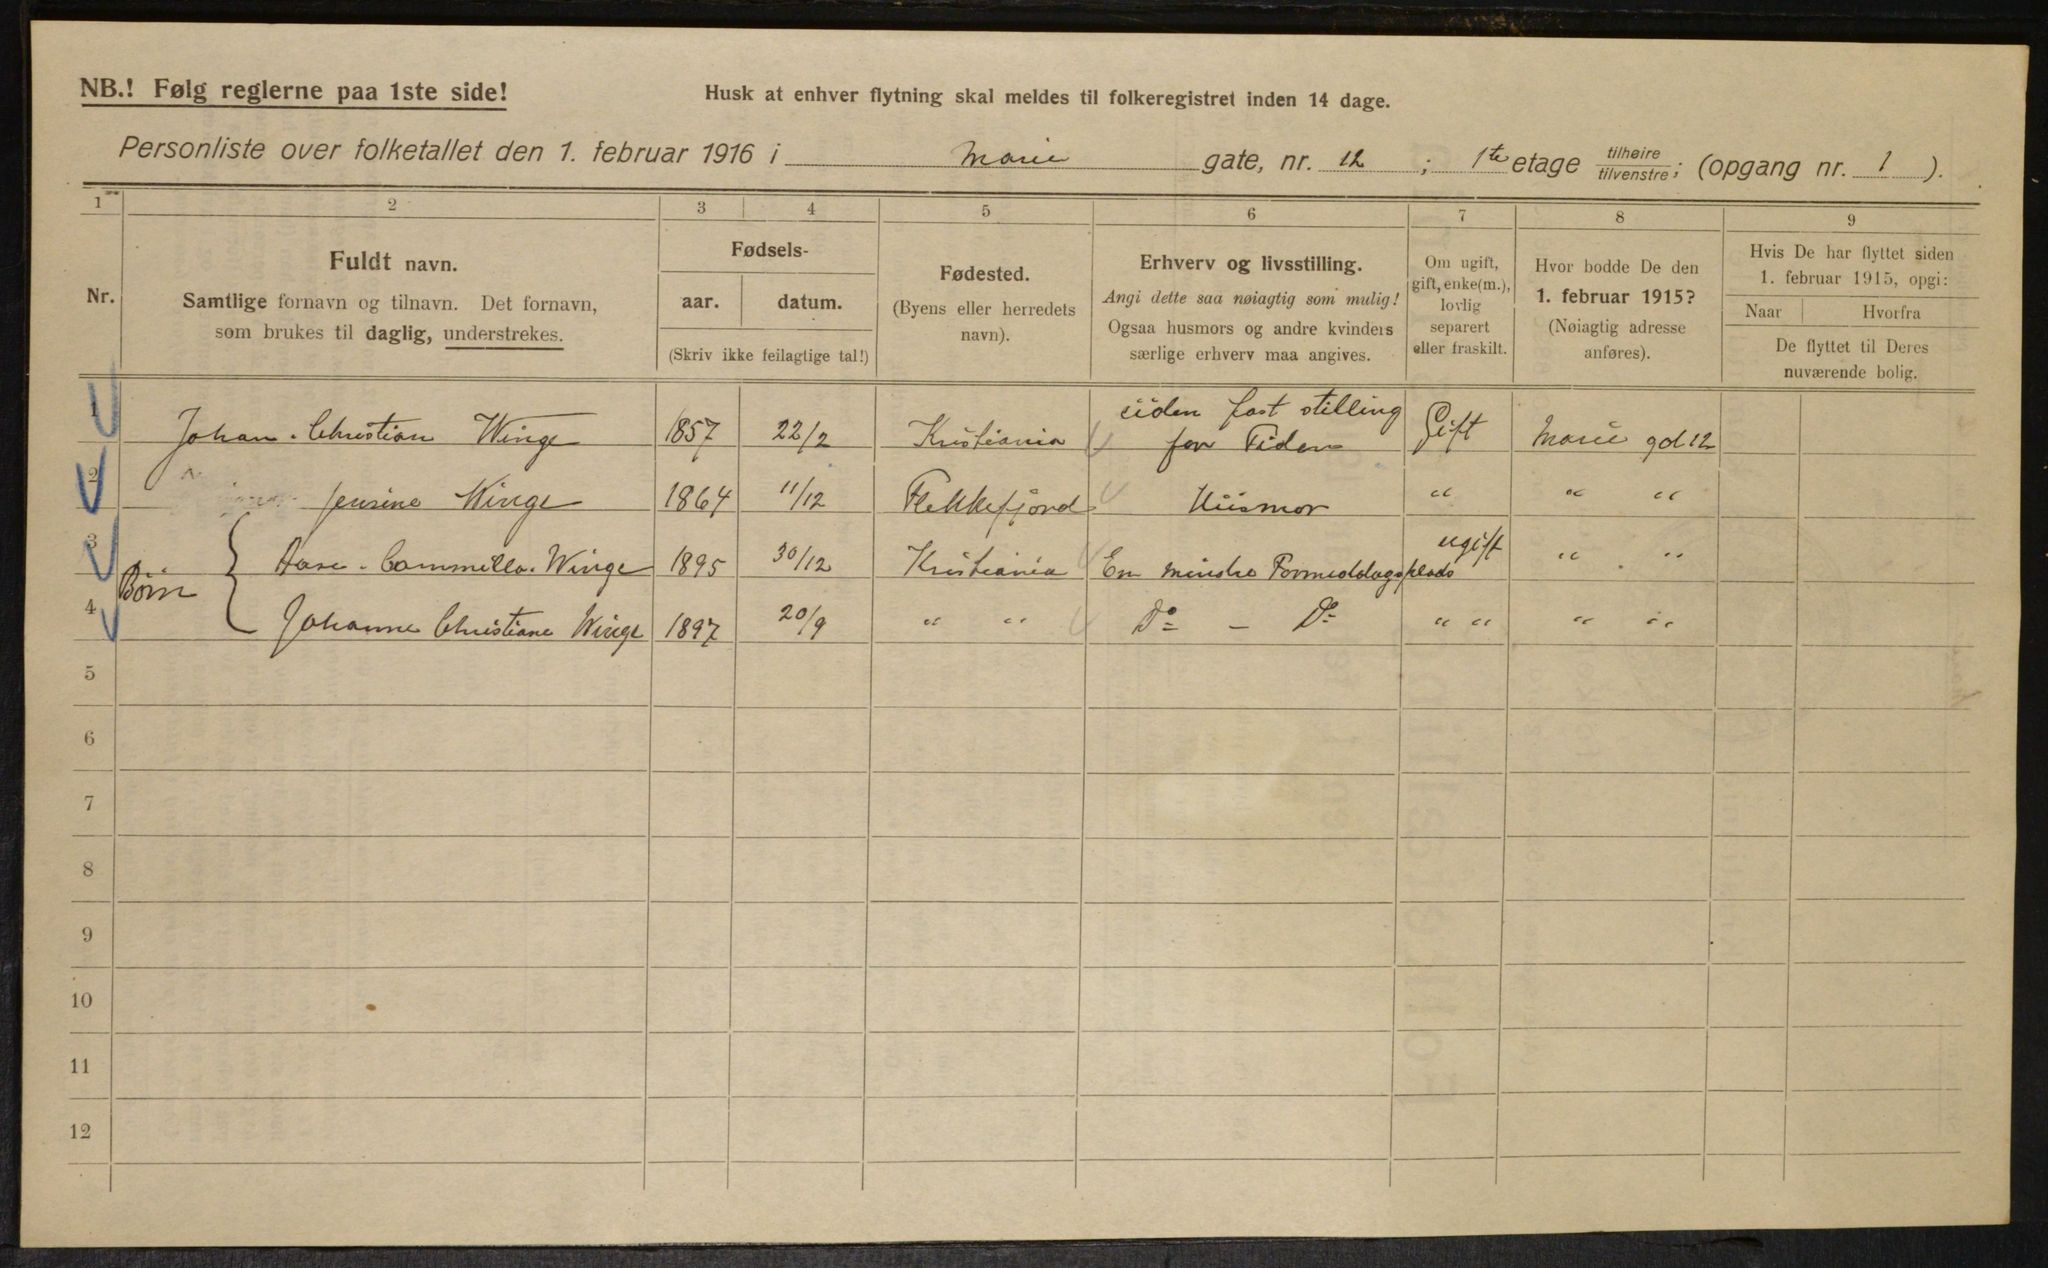 NB.! Følg reglerne paa 1ste side!
Husk at enhver flytning skal meldes til folkeregistret inden 14 dage.
Personliste over folketallet den 1. februar 1916 i Marie gate, nr. 12 ; 1te etage tilhøire / tilvenstre ; (opgang nr. 1 ).
1 2 3 4 5 6 7 8 9
Nr.
Fuldt navn.
Samtlige fornavn og tilnavn. Det fornavn,
som brukes til daglig, understrekes.
Fødsels-
aar. datum.
(Skriv ikke feilagtige tal!)
Fødested.
(Byens eller herredets
navn).
Erhverv og livsstilling.
Angi dette saa nøiagtig som mulig!
Ogsaa husmors og andre kvinders
særlige erhverv maa angives.
Om ugift,
gift, enke(m.),
lovlig
separert
eller fraskilt.
Hvor bodde De den
1. februar 1915?
(Nøiagtig adresse
anføres).
Hvis De har flyttet siden
1. februar 1915, opgi:
Naar Hvorfra
De flyttet til Deres
nuværende bolig.
1 Johan. Christian Winge 1857 22/2 Kristiania uden fast stilling for Tiden Gift Marie gd 12
2 Jensine Winge 1864 11/12 Flekkefjord Husmor " " "
Børn
3 Aase. Cammilla. Winge 1895 30/12 Kristiania En mindre Formiddagsplads ugift " "
4 Johanne Christiane Winge 1897 20/9 " " Do - Do " " " "
5
6
7
8
9
10
11
12